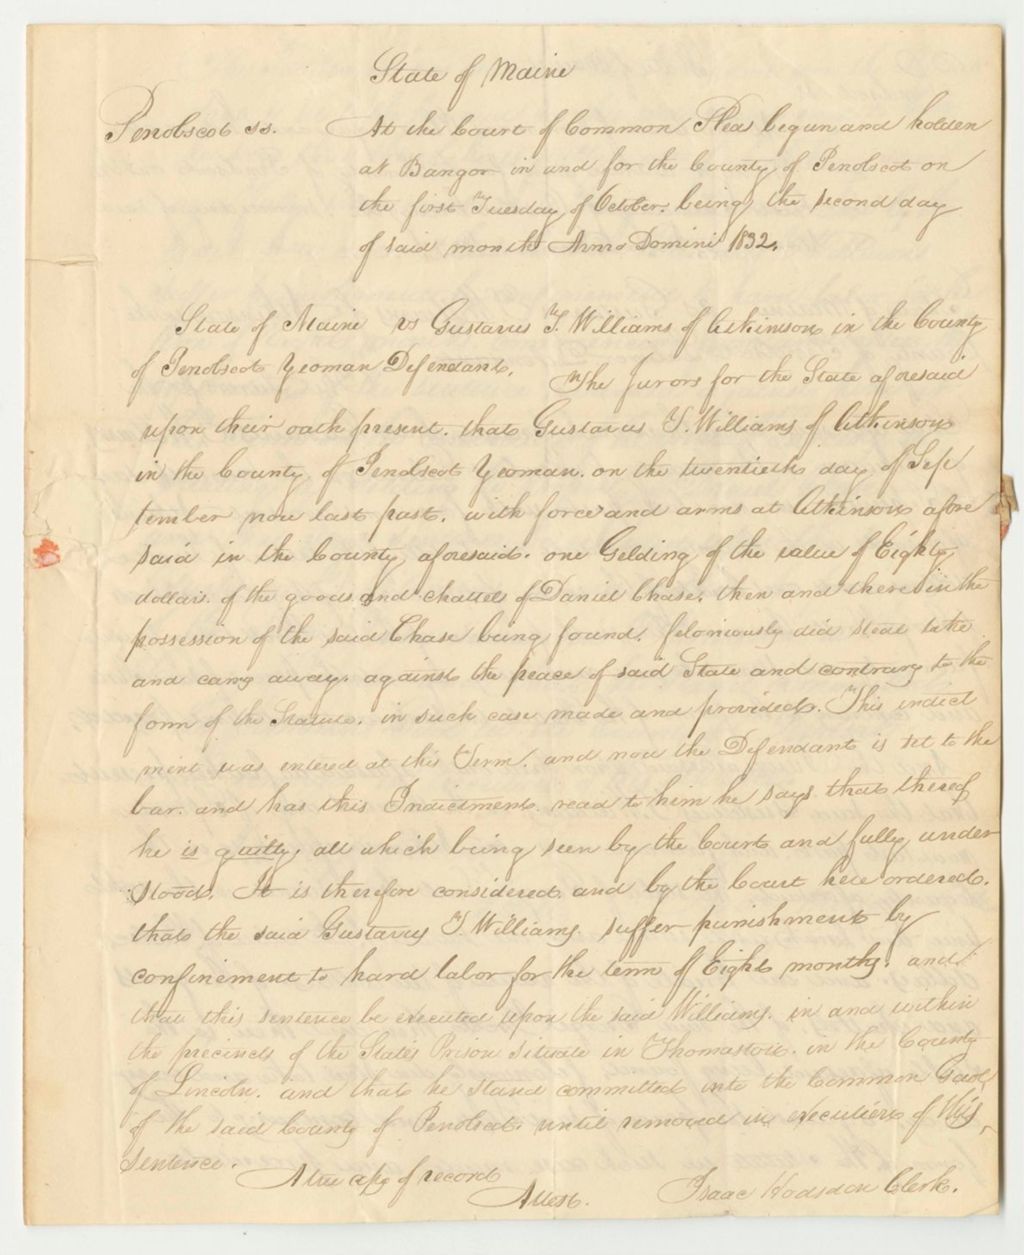 State of Maine
Penobscot ss. At the Court of Common Pleas begun and holden
at Bangor in and for the County of Penobscot on
the first Tuesday of October. being the second day
of said month Anno Domini 1832.
State of Maine vs Gustavus T. Williams of Atkinson in the County
of Penobscot Yeoman Defendant. The Jurors for the State aforesaid
upon their oath present. that Gustavus T. Williams of Atkinson
in the County of Penobscot Yeoman. on the twentieth day of Sep
tember now last past. with force and arms at Atkinson afore
said in the County aforesaid. one Gelding of the value of Eighty
dollars. of the goods and chattels of Daniel Chase. then and there in the
possession of the said Chase being found. feloniously did steal take
and carry away. against the peace of said State and contrary to the
form of the Statute. in such case made and provided. This indict
ment was entered at this Term. and now the Defendant is set to the
bar. and has this Indictment read to him he says that thereof
he is guilty, all which being seen by the Court and fully under
stood. It is therefore considered and by the Court here ordered.
that the said Gustavus T. Williams suffer punishment by
confinement to hard labor for the term of Eight months. and
that this sentence be executed upon the said Williams. in and within
the precincts of the States Prison situate in Thomaston. in the County
of Lincoln. and that he stand committed into the Common Gaol
of the said County of Penobscot until removed in execution of this
sentence.
A true copy of record
Attest. Isaac Hodsdon Clerk.